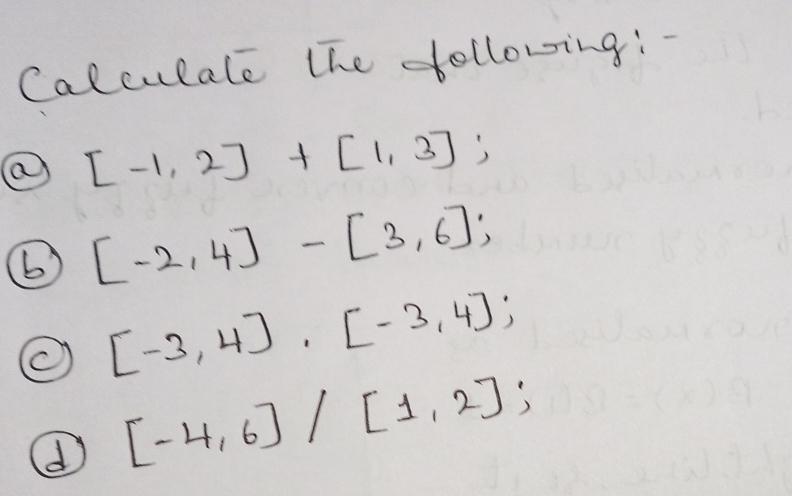 Calculate the following:-
(a) [-1, 2] + [1, 3];
(b) [-2, 4] - [3, 6];
(c) [-3, 4] . [-3, 4];
(d) [-4, 6] / [1, 2];